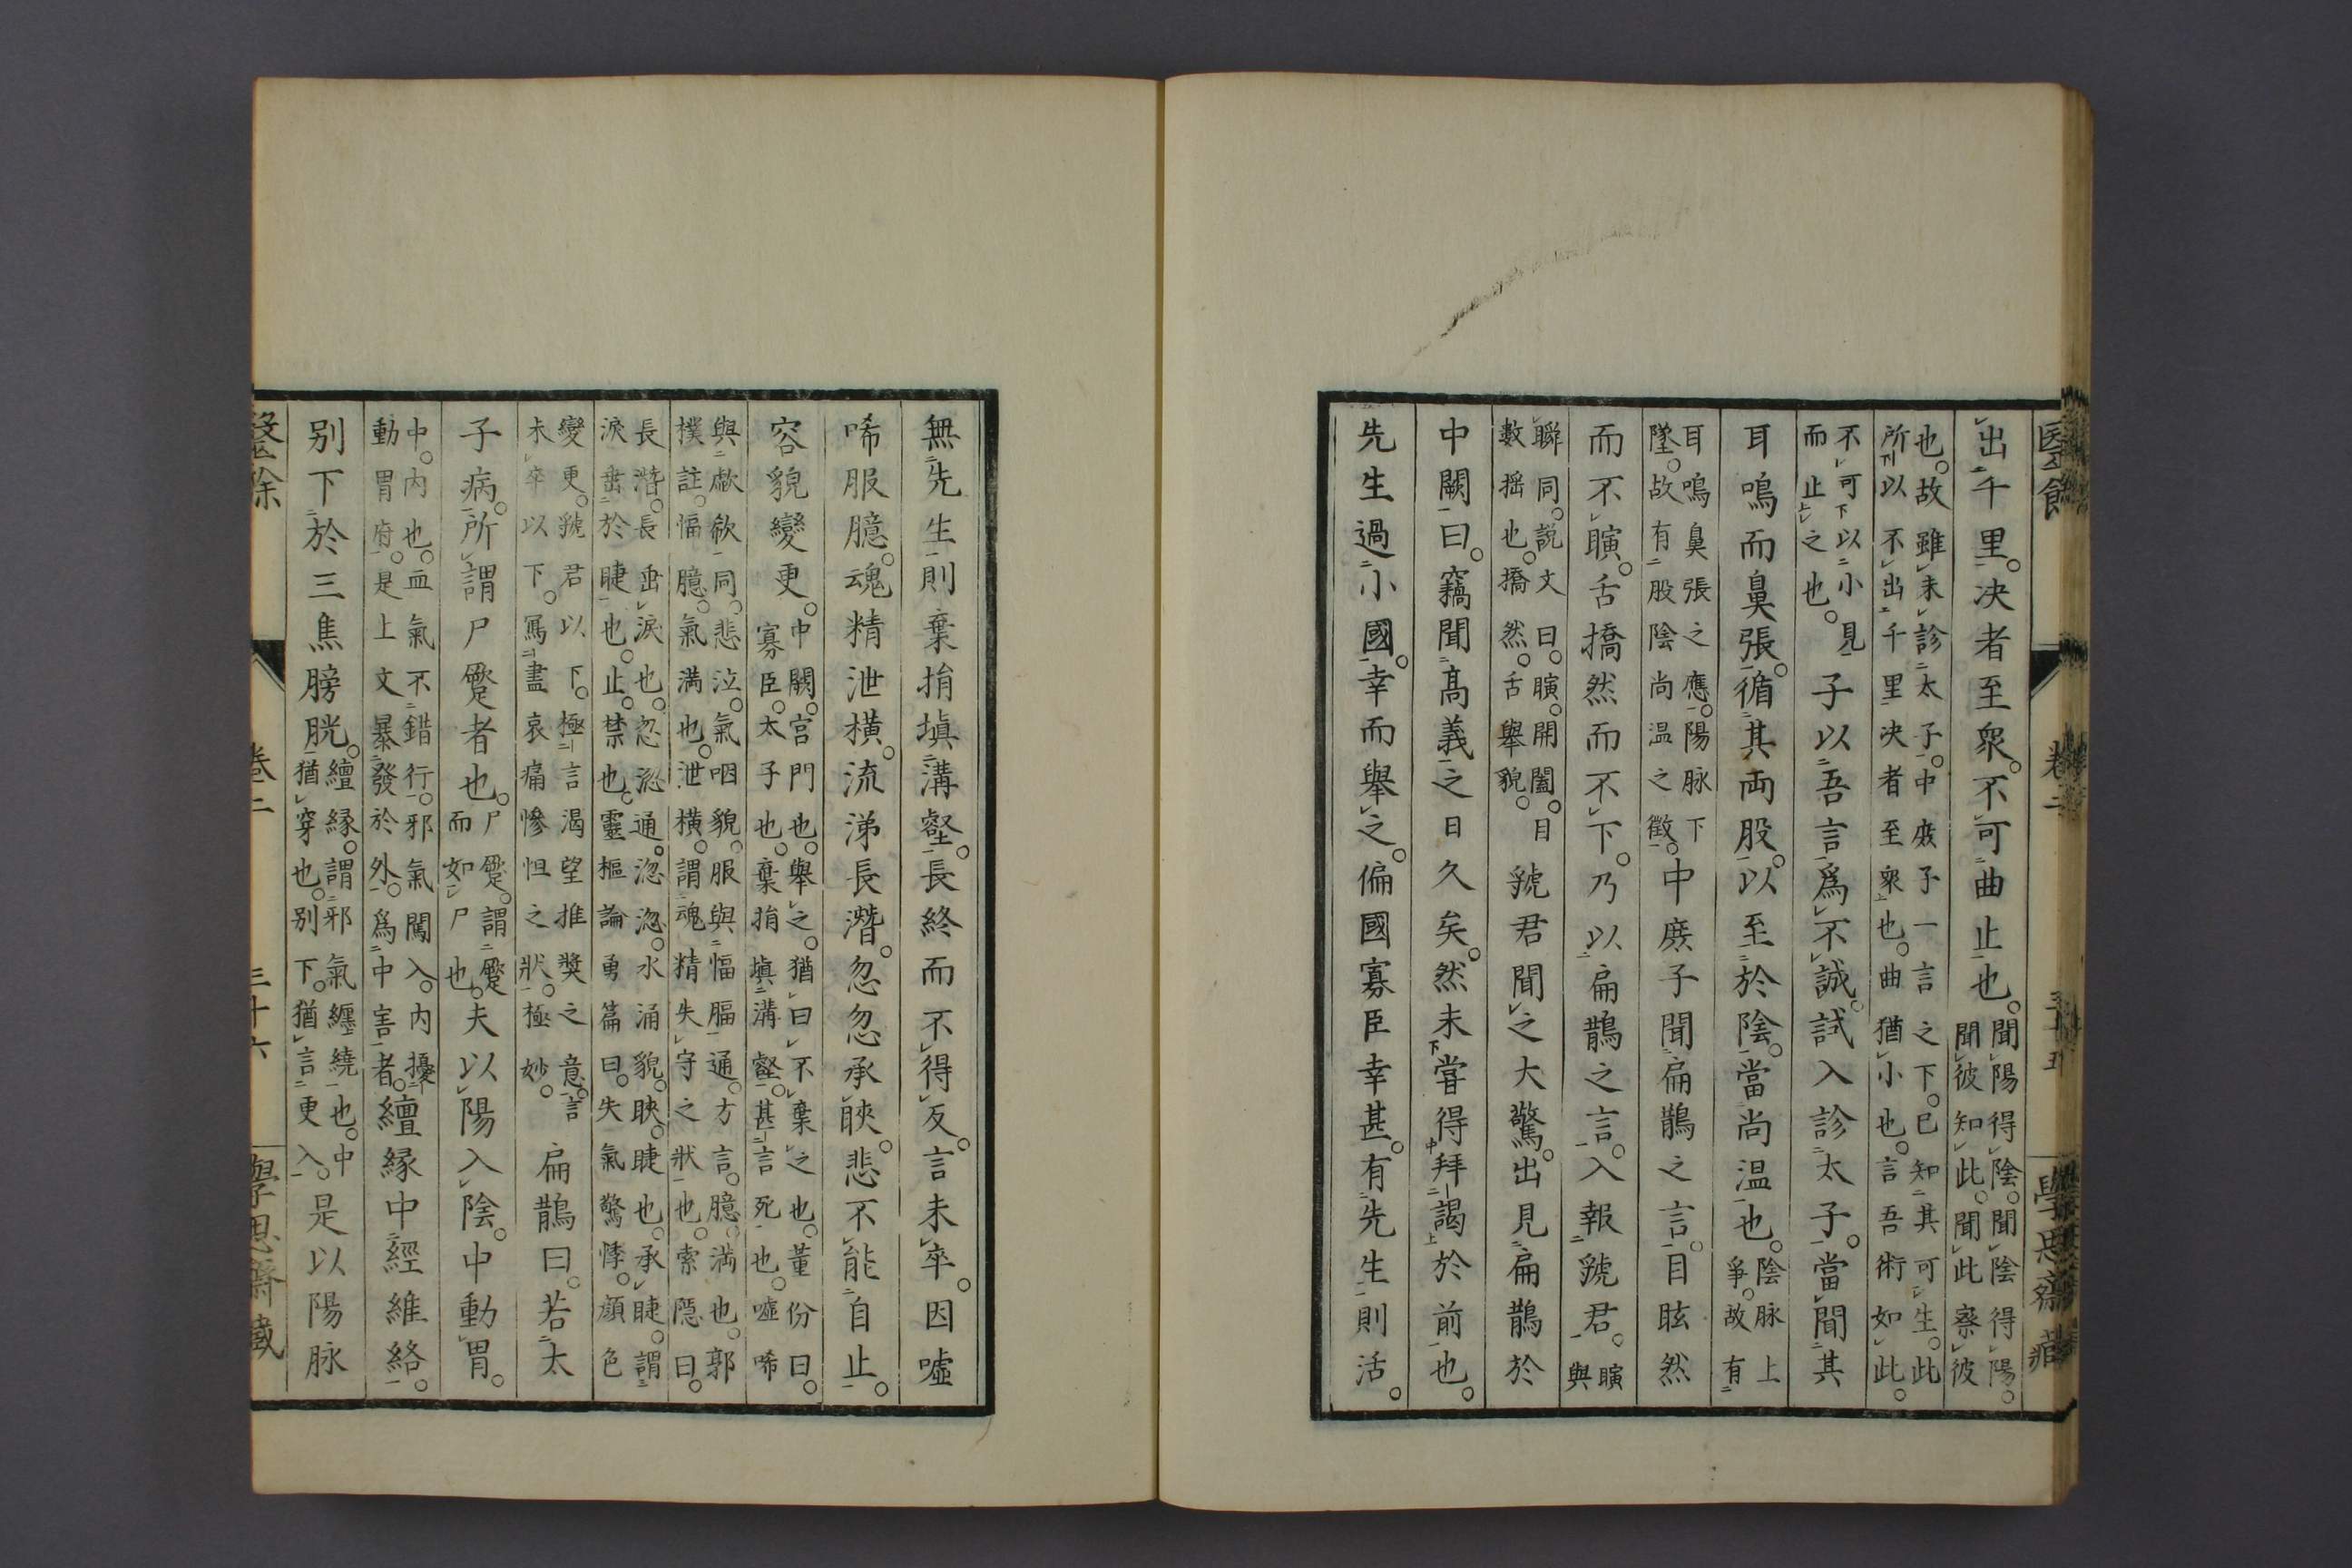 医餘 卷二 三十五 學思齋藏
出千里。决者至衆。不可曲止也。聞陽得陰。聞陰得陽。
聞彼知此。聞此察彼
也。故雖未診太子。中庶子一言之下。已知其可生。此
所以不出千里决者至衆也。曲猶小也。言吾術如此。
不可以小見
而止之也。子以吾言爲不誠。試入診太子。當聞其
耳鳴而鼻張。循其两股。以至於陰。當尚温也。陰脉上
爭。故有
耳鳴鼻張之應。陽脉下
墜。故有股陰尚温之徵。中庶子聞扁鵲之言。目眩然
而不瞚。舌撟然而不下。乃以扁鵲之言。入報虢君。瞚
與
瞬同。説文曰。瞚。開闔目
數揺也。撟然。舌舉貌。虢君聞之大驚。出見扁鵲於
中闕曰。竊聞髙義之日久矣。然未嘗得拜謁於前也。
先生過小國。幸而舉之。偏國寡臣幸甚。有先生則活。
無先生則棄捐塡溝壑。長終而不得反。言未卒。因噓
唏服臆。魂精泄横。流涕長潸。忽忽承䀹。悲不能自止。
容貌變更。中闕。宮門也。舉之。猶曰不棄之也。董份曰。
寡臣。太子也。棄捐塡溝壑。甚言死也。噓唏
與歔欷同。悲泣。氣咽貌。服與愊腷通。方言。臆。満也。郭
樸註。愊臆。氣満也。泄横。謂魂精失守之狀也。索隠曰。
長潸。長垂涙也。忽㳷通。㳷㳷。水涌貌。䀹。睫也。承睫。謂
涙垂於睫也。止。禁也。靈樞論勇篇曰。失氣驚悸。顔色
變更。虢君以下。極言渇望推奬之意。言
未卒以下。冩盡哀痛慘怛之狀。極妙。扁鵲曰。若太
子病。所謂尸蹷者也。尸蹷。謂蹷
而如尸也。夫以陽入陰。中動胃。
中。内也。血氣不錯行。邪氣闖入。内擾
動胃府。是上文暴發於外。爲中害者。繵縁中經維絡。
别下於三焦膀胱。繵縁。謂邪氣纏繞也。中
猶穿也。别下。猶言更入。是以陽脉
醫餘 卷二 三十六 學思齋藏